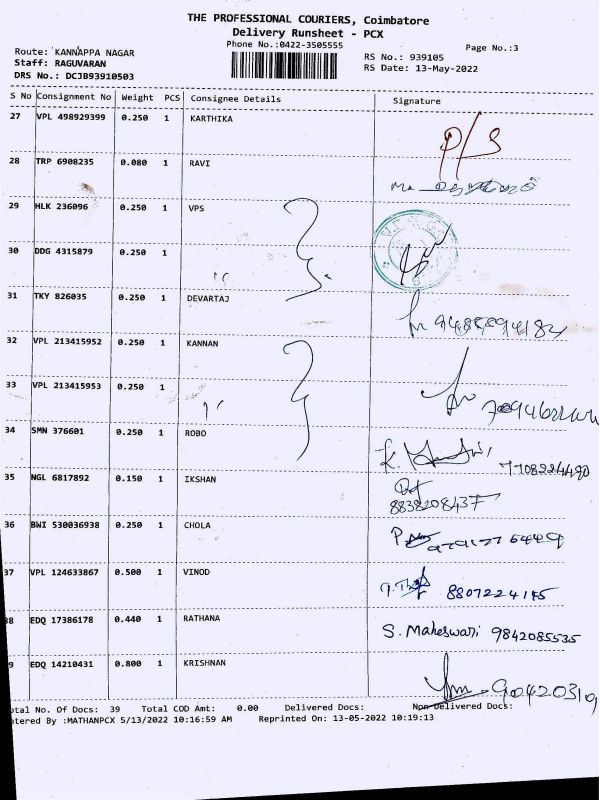 THE PROFESSIONAL COURIERS, Coimbatore
Delivery Runsheet - PCX
Phone No.:0422-3505555
Page No.:3
Route: KANNAPPA NAGAR
Staff: RAGUVARAN
DRS No.: DCJB93910503
RS No.: 939105
RS Date: 13-May-2022
S No Consignment No Weight PCS Consignee Details Signature
27 VPL 498929399 0.250 1 KARTHIKA P/S
28 TRP 6908235 0.080 1 RAVI
29 HLK 236096 0.250 1 VPS
30 DDG 4315879 0.250 1
31 TKY 826035 0.250 1 DEVARTAJ 9488894182
32 VPL 213415952 0.250 1 KANNAN
33 VPL 213415953 0.250 1
34 SMN 376601 0.250 1 ROBO
35 NGL 6817892 0.150 1 IKSHAN 8838208437
36 BWI 530036938 0.250 1 CHOLA
37 VPL 124633867 0.500 1 VINOD 8807224145
8 EDQ 17386178 0.440 1 RATHANA S. Maheswari 9842085535
9 EDQ 14210431 0.800 1 KRISHNAN
otal No. Of Docs: 39 Total COD Amt: 0.00 Delivered Docs: Non Delivered Docs:
tered By :MATHANPCX 5/13/2022 10:16:59 AM Reprinted On: 13-05-2022 10:19:13